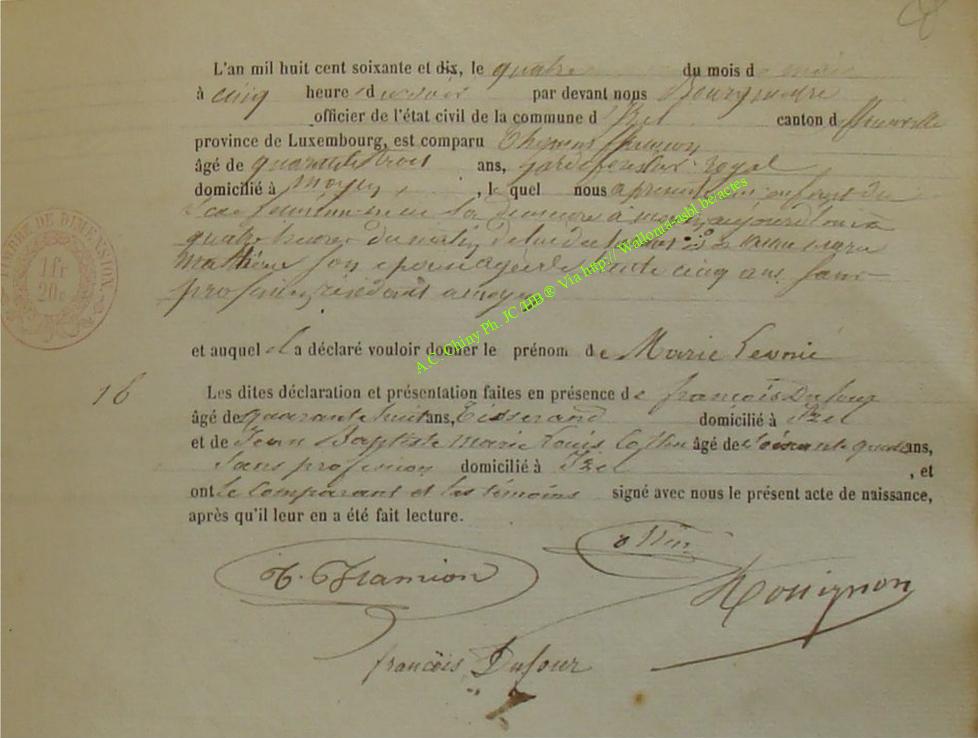 L'an mil huit cent soixante et dix, le quatre du mois d
à cinq heures du soir par devant nous Bourgmestre
officier de l'état civil de la commune d'Izel canton d
province de Luxembourg, est comparu Thomas
âgé de quarante trois ans, garde forestier royal
domicilié à Moyen, lequel nous a présenté un enfant du
sexe féminin né en sa demeure à Moyen aujourd'hui à
quatre heures du matin, de lui déclarant et de Marie
son épouse âgée de trente cinq ans, sans
profession, résidant à Moyen
et auquel il a déclaré vouloir donner le prénom de Marie Leonie
16
Les dites déclaration et présentation faites en présence de françois Dufour
âgé de quarante huit ans, Tisserand domicilié à Izel
et de Jean Baptiste Marie Louis âgé de soixante ans,
Sans profession domicilié à Izel, et
ont le comparant et les témoins signé avec nous le présent acte de naissance,
après qu'il leur en a été fait lecture.
françois Dufour
TIMBRE DE DIMENSION
1 fr
20c
A.C. Chiny Ph. JC HB ® Via http://Wallonia-asbl.be/actes